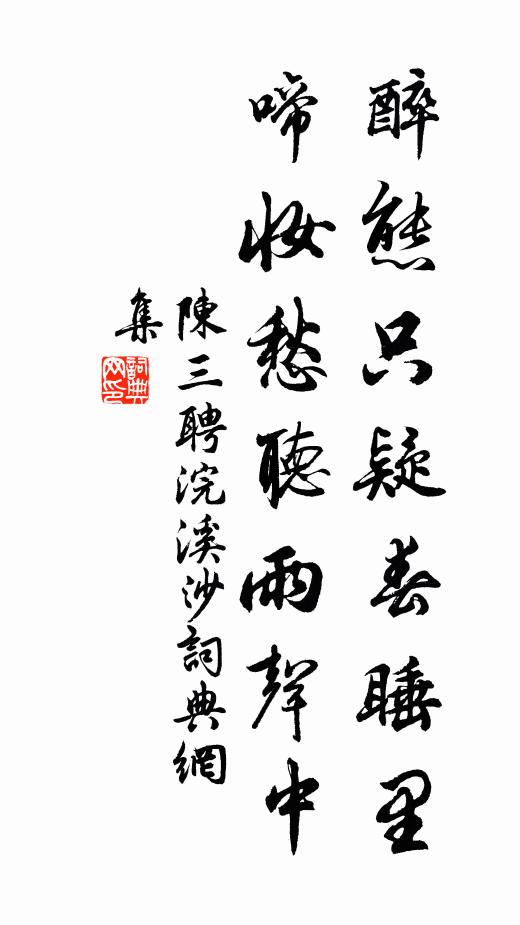 醉態只疑春睡里
啼妝愁聽雨聲中
陳三聘浣溪沙詞典網
集
詞典網印